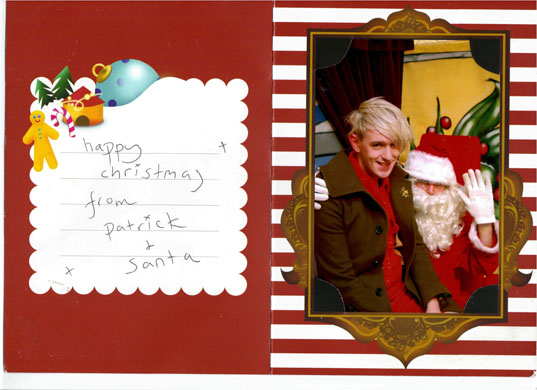 happy
christmas
from
patrick
&
santa